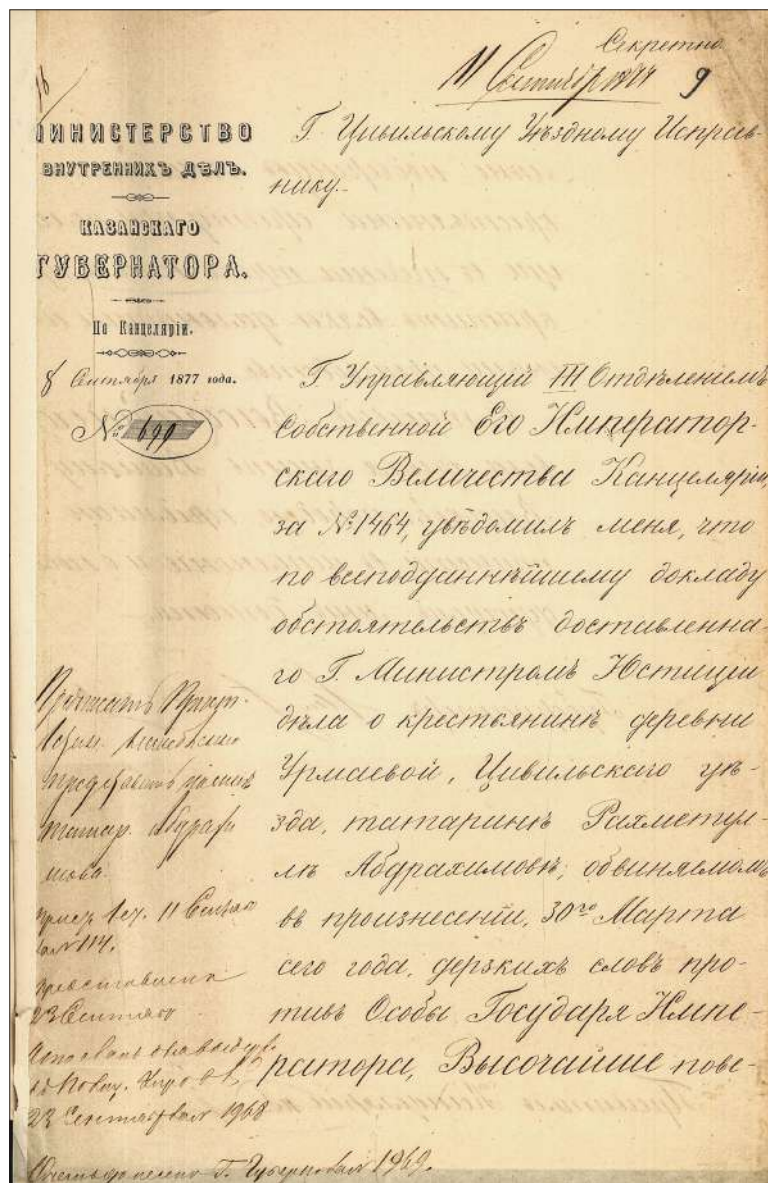 Секретно
11 Сентября 9
МИНИСТЕРСТВО
ВНУТРЕННИХЪ ДѢЛЪ.
КАЗАНСКАГО
ГУБЕРНАТОРА.
По Канцеляріи.
8 Сентября 1877 года.
№ 699
Г. Цивильскому Уѣздному Исправ-
нику.
Г. Управляющій III Отдѣленіемъ
Собственной Его Император-
скаго Величества Канцеляріи,
за № 1464, увѣдомилъ меня, что
по всеподданнѣйшему докладу
обстоятельствъ доставленна-
го Г. Министромъ Юстиціи
дѣла о крестьянинѣ деревни
Урмаевой, Цивильскаго уѣ-
зда, татаринѣ Рахметул-
лѣ Абдрахимовѣ, обвиняемомъ
въ произнесеніи, 30го Марта
сего года, дерзкихъ словъ про-
тивъ Особы Государя Импе-
ратора, Высочайше пове-
представить
татар. Абдрахи
мова.
11 Сентяб
№ 114.
представлена
23 Сентяб
23 Сентября № 1968
донесено Г. Губерн № 1969.